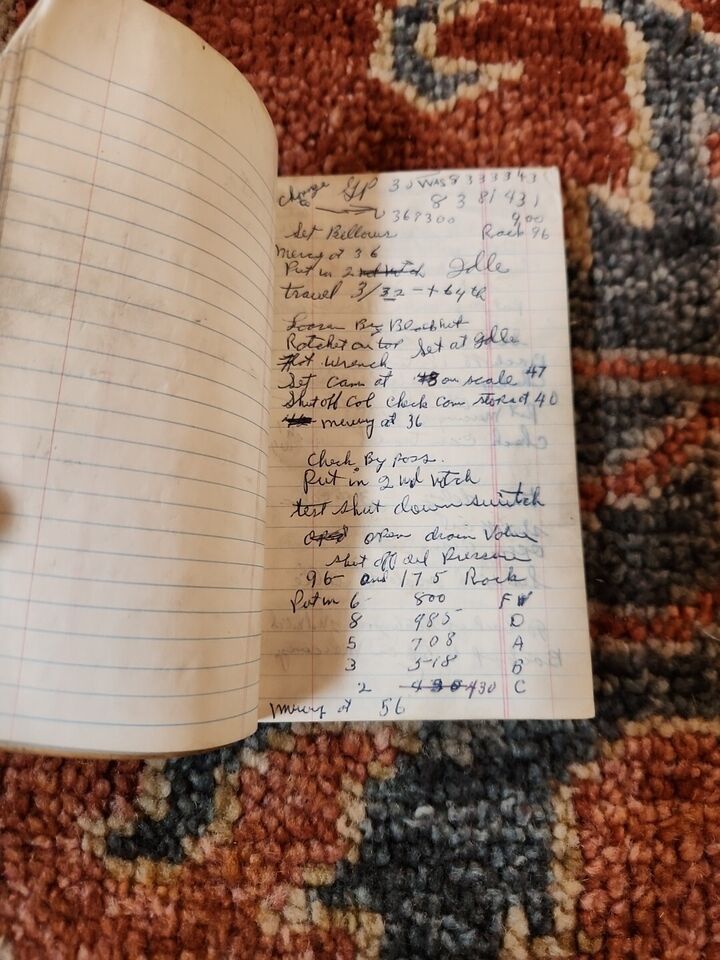 change GP 30 WAS 8333343
to 8 3 81 431
368300 900
Set Bellows Rack 96
mercy at 36
Put in 2 Idle
travel 3/32 - + 64th
Loosen By
Ratchet on top Set at Idle
wrench
Set Cam at on scale 47
Shut off Col check Cam at 40
mercy at 36
Check By Pass.
Put in 2nd notch
test shut down switch
open drain Valve
shut off oil Pressure
96 and 175 Rack
Put in 6 800 FW
8 985 D
5 708 A
3 518 B
2 430 430 C
mercy at 56